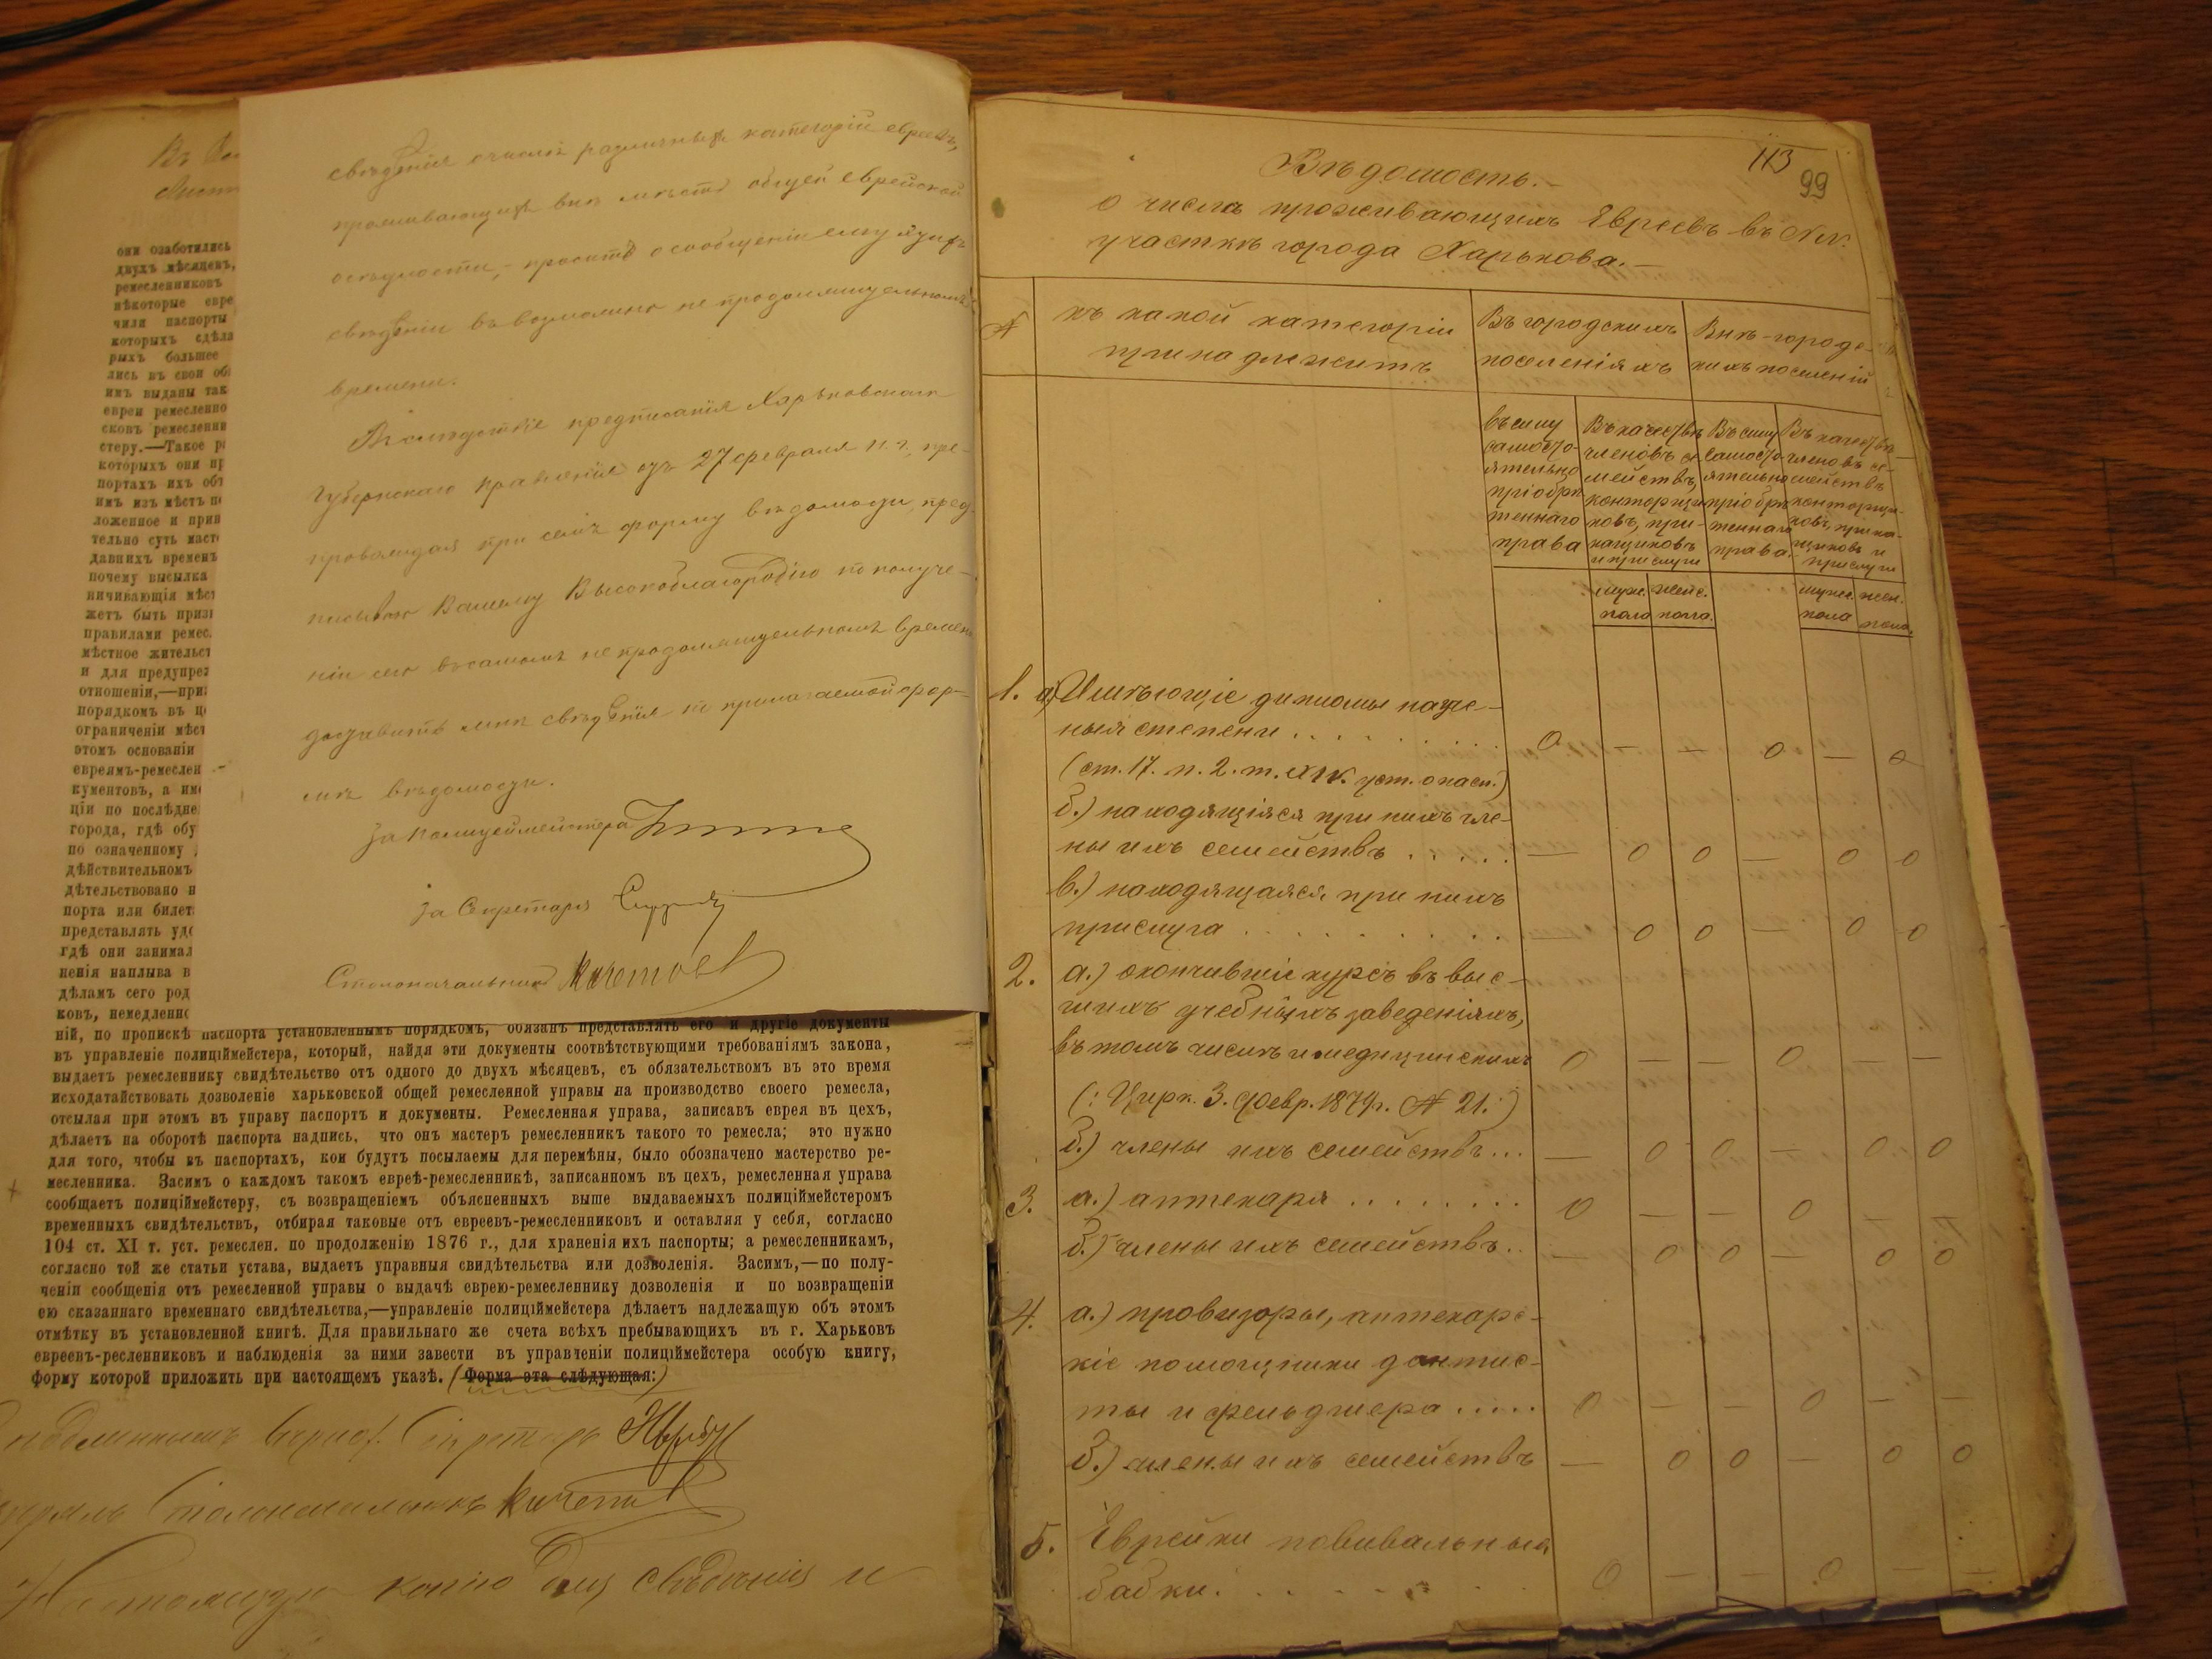 Въ
они озаботились
двухъ мѣсяцевъ,
ремесленниковъ
нѣкоторые евре
чили паспорты
которыхъ сдѣла
рыхъ большее
лись въ свои об
имъ выданы так
евреи ремесленно
сковъ ремесленни
стеру.—Такое р
которыхъ они пр
портахъ ихъ об
имъ изъ мѣстъ п
ложенное и прин
тельно суть маст
давнихъ временъ
почему высылка
ничивающія мѣст
жетъ быть призн
правилами ремес.
мѣстное жительст
и для предупреж
отношеніи,—при
порядкомъ въ ц
ограниченіи мѣст
этомъ основаніи
евреямъ-ремеслен
кументовъ, а им
ціи по послѣдне
города, гдѣ обу
по означенному
дѣйствительномъ
дѣтельствовано н
порта или билет
представлять удо
гдѣ они занимал
ненія наплыва в
дѣламъ сего род
ковъ, немедленно
ній, по пропискѣ паспорта установленнымъ порядкомъ, обязанъ представлять его и другіе документы
въ управленіе полиціймейстера, который, найдя эти документы соотвѣтствующими требованіямъ закона,
выдаетъ ремесленнику свидѣтельство отъ одного до двухъ мѣсяцевъ, съ обязательствомъ въ это время
исходатайствовать дозволеніе харьковской общей ремесленной управы на производство своего ремесла,
отсылая при этомъ въ управу паспортъ и документы. Ремесленная управа, записавъ еврея въ цехъ,
дѣлаетъ на оборотѣ паспорта надпись, что онъ мастеръ ремесленникъ такого то ремесла; это нужно
для того, чтобы въ паспортахъ, кои будутъ посылаемы для перемѣны, было обозначено мастерство ре-
месленника. Засимъ о каждомъ такомъ евреѣ-ремесленникѣ, записанномъ въ цехъ, ремесленная управа
сообщаетъ полиціймейстеру, съ возвращеніемъ объясненныхъ выше выдаваемыхъ полиціймейстеромъ
временныхъ свидѣтельствъ, отбирая таковые отъ евреевъ-ремесленниковъ и оставляя у себя, согласно
104 ст. XI т. уст. ремеслен. по продолженію 1876 г., для храненія ихъ паспорты; а ремесленникамъ,
согласно той же статьи устава, выдаетъ управныя свидѣтельства или дозволенія. Засимъ,—по полу-
ченіи сообщенія отъ ремесленной управы о выдачѣ еврею-ремесленнику дозволенія и по возвращеніи
ею сказаннаго временнаго свидѣтельства,—управленіе полиціймейстера дѣлаетъ надлежащую объ этомъ
отмѣтку въ установленной книгѣ. Для правильнаго же счета всѣхъ пребывающихъ въ г. Харьковъ
евреевъ-ресленниковъ и наблюденія за ними завести въ управленіи полиціймейстера особую книгу,
форму которой приложить при настоящемъ указѣ. (Форма эта слѣдующая:)
подлиннымъ вѣрно. Секретарь
Столоначальникъ
копію для свѣдѣнія и
свѣдѣнія о числѣ различныхъ категорій евреевъ,
проживающихъ внѣ мѣстъ общей еврейской
осѣдлости,- проситъ о сообщеніи ему этихъ
свѣдѣній въ возможно не продолжительномъ
времени.
Вслѣдствіе предписанія Харьковскаго
Губернскаго правленія отъ 27 февраля н. г., пре-
провождая при семъ форму вѣдомости, пред-
писываю Вашему Высокоблагородію по получе-
ніи сего въ самомъ не продолжительномъ времени
доставить мнѣ свѣдѣнія по прилагаемой фор-
мѣ вѣдомости.
За полицеймейстера
За Секретаря
Столоначальникъ
113
99
Вѣдомость.-
о числѣ проживающихъ Евреевъ въ
участкѣ города Харькова.-
№ къ какой категоріи принадлежитъ
Въ городскихъ поселеніяхъ
Внѣ-городс-кихъ поселеній
въ силу самосто-ятельно пріобрѣ-теннаго права
Въ качествѣ членовъ се-мействъ, конторщи-ковъ, при-кащиковъ и прислуги
Въ силу самосто-ятельно пріобрѣ-теннаго права.
Въ качествѣ членовъ се-мействъ конторщи-ковъ, прика-щиковъ и прислуги
муж. пола женс. пола.
муж. пола жен. пола.
1. а) Имѣющіе дипломы на уче-
ныя степени . . . . . . . . . 0 — — 0 — 0
(ст. 17. п. 2. т. XIV. уст. о пасп.)
б.) находящіяся при нихъ чле-
ны ихъ семействъ . . . . . — 0 0 — 0 0
в.) находящаяся при нихъ
прислуга . . . . . . . . — 0 0 — 0 0
2. а.) окончившіе курсъ въ выс-
шихъ учебныхъ заведеніяхъ,
въ томъ числѣ и медицинскихъ 0 — — 0 — —
(: Цирк. 3. Февр. 1879г. № 21.:)
б.) члены ихъ семействъ... — 0 0 — 0 0
3. а.) аптекаря . . . . . . . . 0 — — 0 — —
б.) члены ихъ семействъ.. — 0 0 — 0 0
4. а.) провизоры, аптекарс-
кіе помощники дантис-
ты и фельдшера ..... 0 — — 0 — —
б.) члены ихъ семействъ — 0 0 — 0 0
5. Еврейки повивальныя
бабки. . . . . . . . 0 — — 0 — —